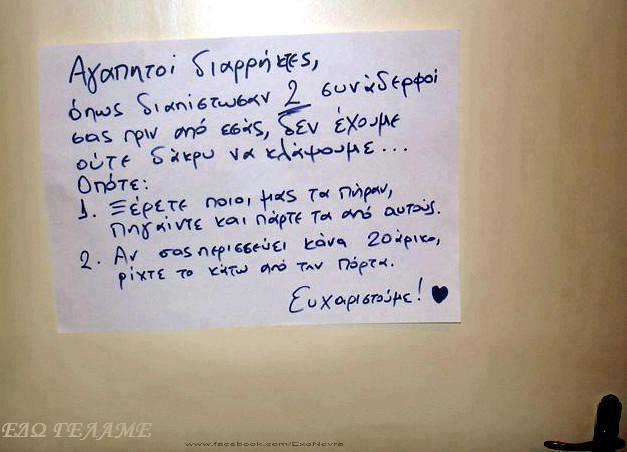 Αγαπητοί διαρρήκτες,
όπως διαπίστωσαν 2 συνάδερφοί
σας πριν από εσάς, δεν έχουμε
ούτε δάκρυ να κλάψουμε...
Οπότε:
1. Ξέρετε ποιοι μας τα πήραν,
πηγαίντε και πάρτε τα από αυτούς.
2. Αν σας περισσεύει κάνα 20άρικο,
ρίχτε το κάτω από την πόρτα.
Ευχαριστούμε! ♥
ΕΔΩ ΓΕΛΑΜΕ
www.facebook.com/ExoNevra